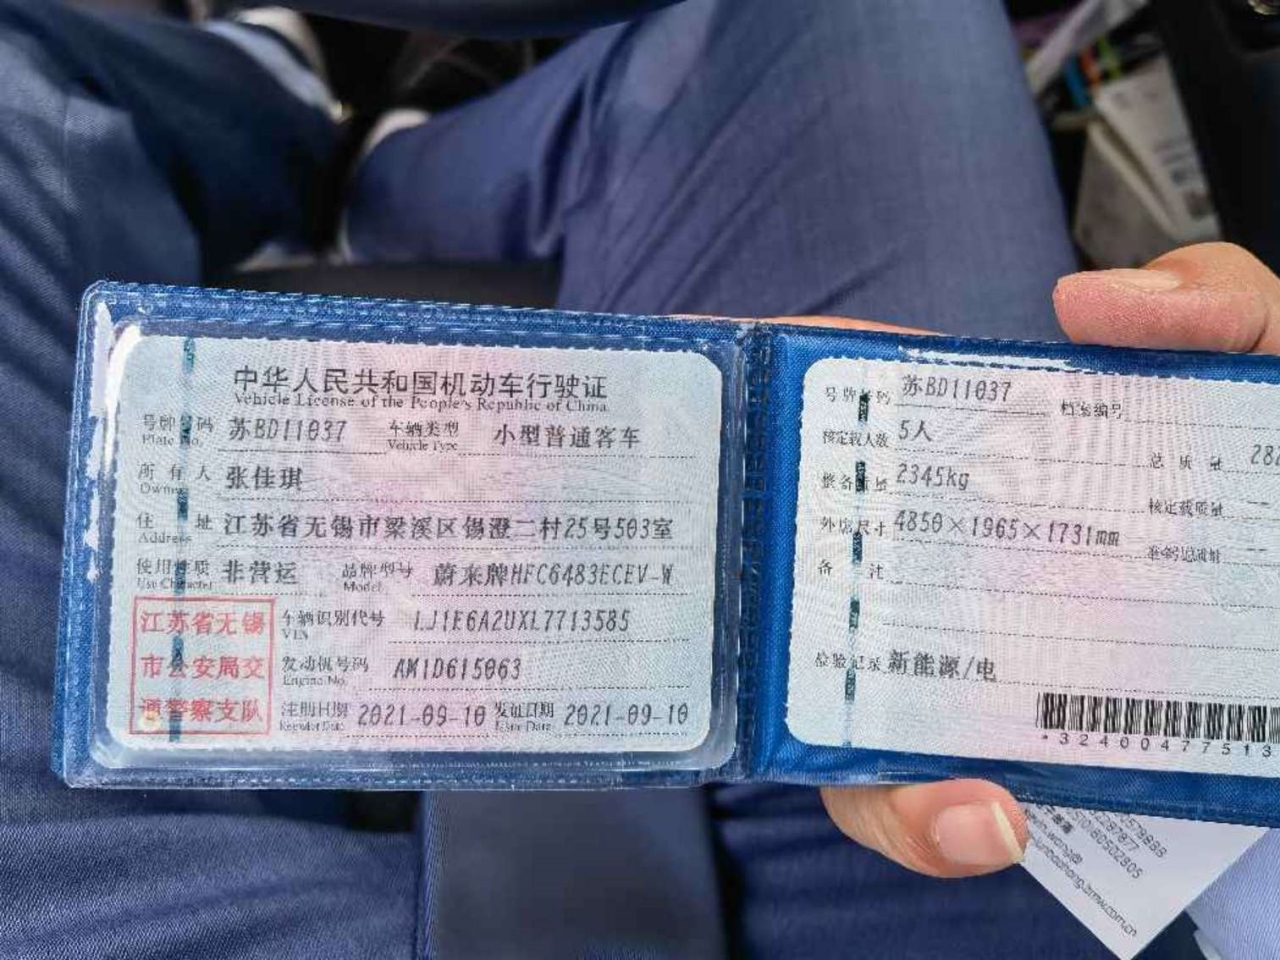 中华人民共和国机动车行驶证
Vehicle License of the People's Republic of China
号牌号码 苏BD11037 车辆类型 小型普通客车
Plate No. Vehicle Type
所有人 张佳琪
Owner
住址 江苏省无锡市梁溪区锡澄二村25号503室
Address
使用性质 非营运 品牌型号 蔚来牌HFC6483ECEV-W
Use Character Model
江苏省无锡
市公安局交
通警察支队
车辆识别代号 LJ1E6A2UXL7713585
VIN
发动机号码 AM1D615063
Engine No.
注册日期 2021-09-10 发证日期 2021-09-10
Register Date Issue Date
号牌号码 苏BD11037 档案编号
核定载人数 5人 总质量 282
整备质量 2345kg 核定载质量 --
外廓尺寸 4850×1965×1731mm 准牵引总质量 --
备注
检验记录 新能源/电
*32400477513
80502805